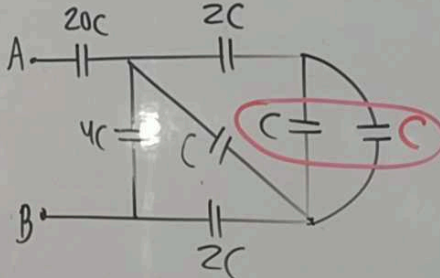 20C 2C
A
4C C C C
B
2C